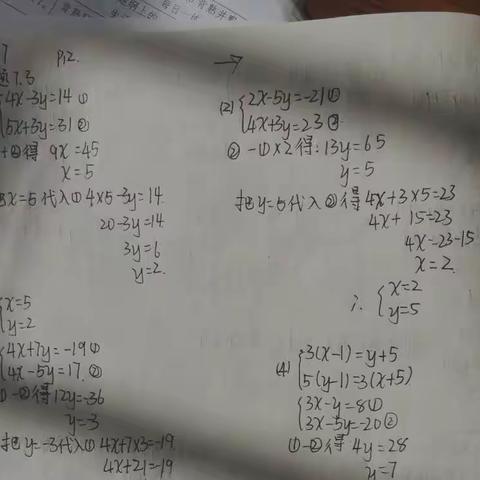 7 P12.
题7.3
4x-3y=14 ①
5x+3y=31 ②
+②得 9x=45
x=5
把x=5代入① 4x5-3y=14.
20-3y=14
3y=6
y=2.
x=5
y=2
4x+7y=-19①
4x-5y=17.②
①-②得12y=-36
y=-3
把y=-3代入① 4x+7x3=-19.
4x+21=-19
→
(2) {2x-5y=-21①
4x+3y=23②
②-①×2得:13y=65
y=5
把y=5代入②得4x+3×5=23
4x+15=23
4x=23-15
x=2.
∴ {x=2
y=5
(4) {3(x-1)=y+5
5(y-1)=3(x+5)
{3x-y=8①
3x-5y=-20②
①-②得 4y=28
y=7